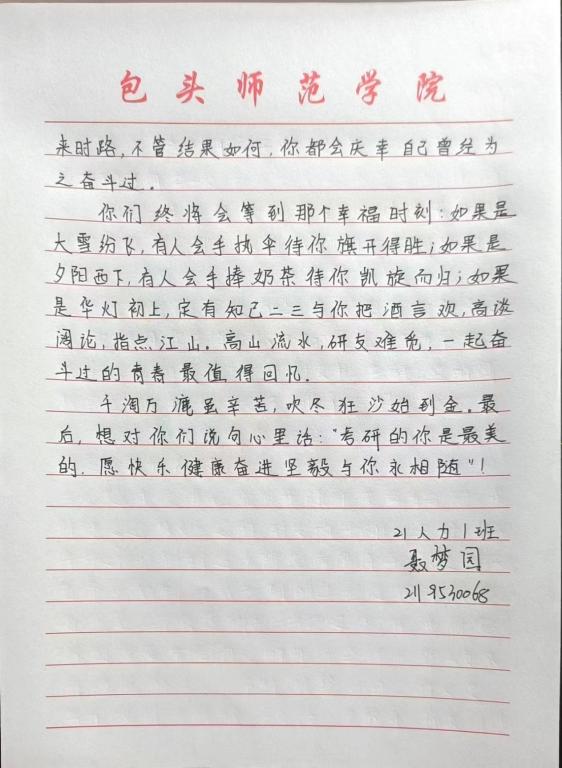 包头师范学院
来时路,不管结果如何,你都会庆幸自己曾经为
之奋斗过.
你们终将会等到那个幸福时刻:如果是
大雪纷飞,有人会手执伞待你旗开得胜;如果是
夕阳西下,有人会手捧奶茶待你凯旋而归;如果
是华灯初上,定有知己二三与你把酒言欢,高谈
阔论,指点江山.高山流水,研友难觅,一起奋
斗过的青春最值得回忆.
千淘万漉虽辛苦,吹尽狂沙始到金.最
后,想对你们说句心里话:"考研的你是最美
的,愿快乐健康奋进坚毅与你永相随"!
21人力1班
聂梦园
2119530068